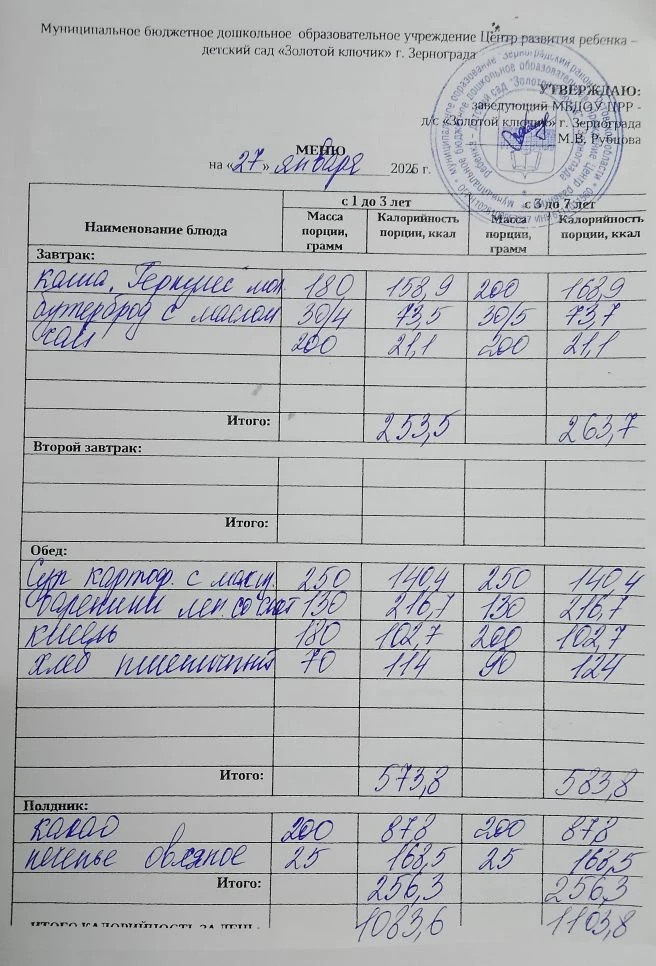 Муниципальное бюджетное дошкольное образовательное учреждение Центр развития ребенка –
детский сад «Золотой ключик» г. Зернограда
УТВЕРЖДАЮ:
заведующий МБДОУ ЦРР -
д/с «Золотой ключик» г. Зернограда
М.В. Рубцова
МЕНЮ
на «27» января 2026 г.
с 1 до 3 лет с 3 до 7 лет
Наименование блюда Масса порции, грамм Калорийность порции, ккал Масса порции, грамм Калорийность порции, ккал
Завтрак:
Каша, Геркулес мол. 180 158,9 200 168,9
бутерброд с маслом 30/4 73,5 30/5 73,7
чай 200 21,1 200 21,1
Итого: 253,5 263,7
Второй завтрак:
Итого:
Обед:
Суп картоф. с 250 140,4 250 140,4
Вареники лен. со 130 216,7 130 216,7
кисель 180 102,7 200 102,7
хлеб пшеничный 70 114 90 124
Итого: 573,8 583,8
Полдник:
какао 200 87,8 200 87,8
печенье овсяное 25 168,5 25 168,5
Итого: 256,3 256,3
ИТОГО КАЛОРИЙНОСТЬ ЗА ДЕНЬ: 1083,6 1103,8